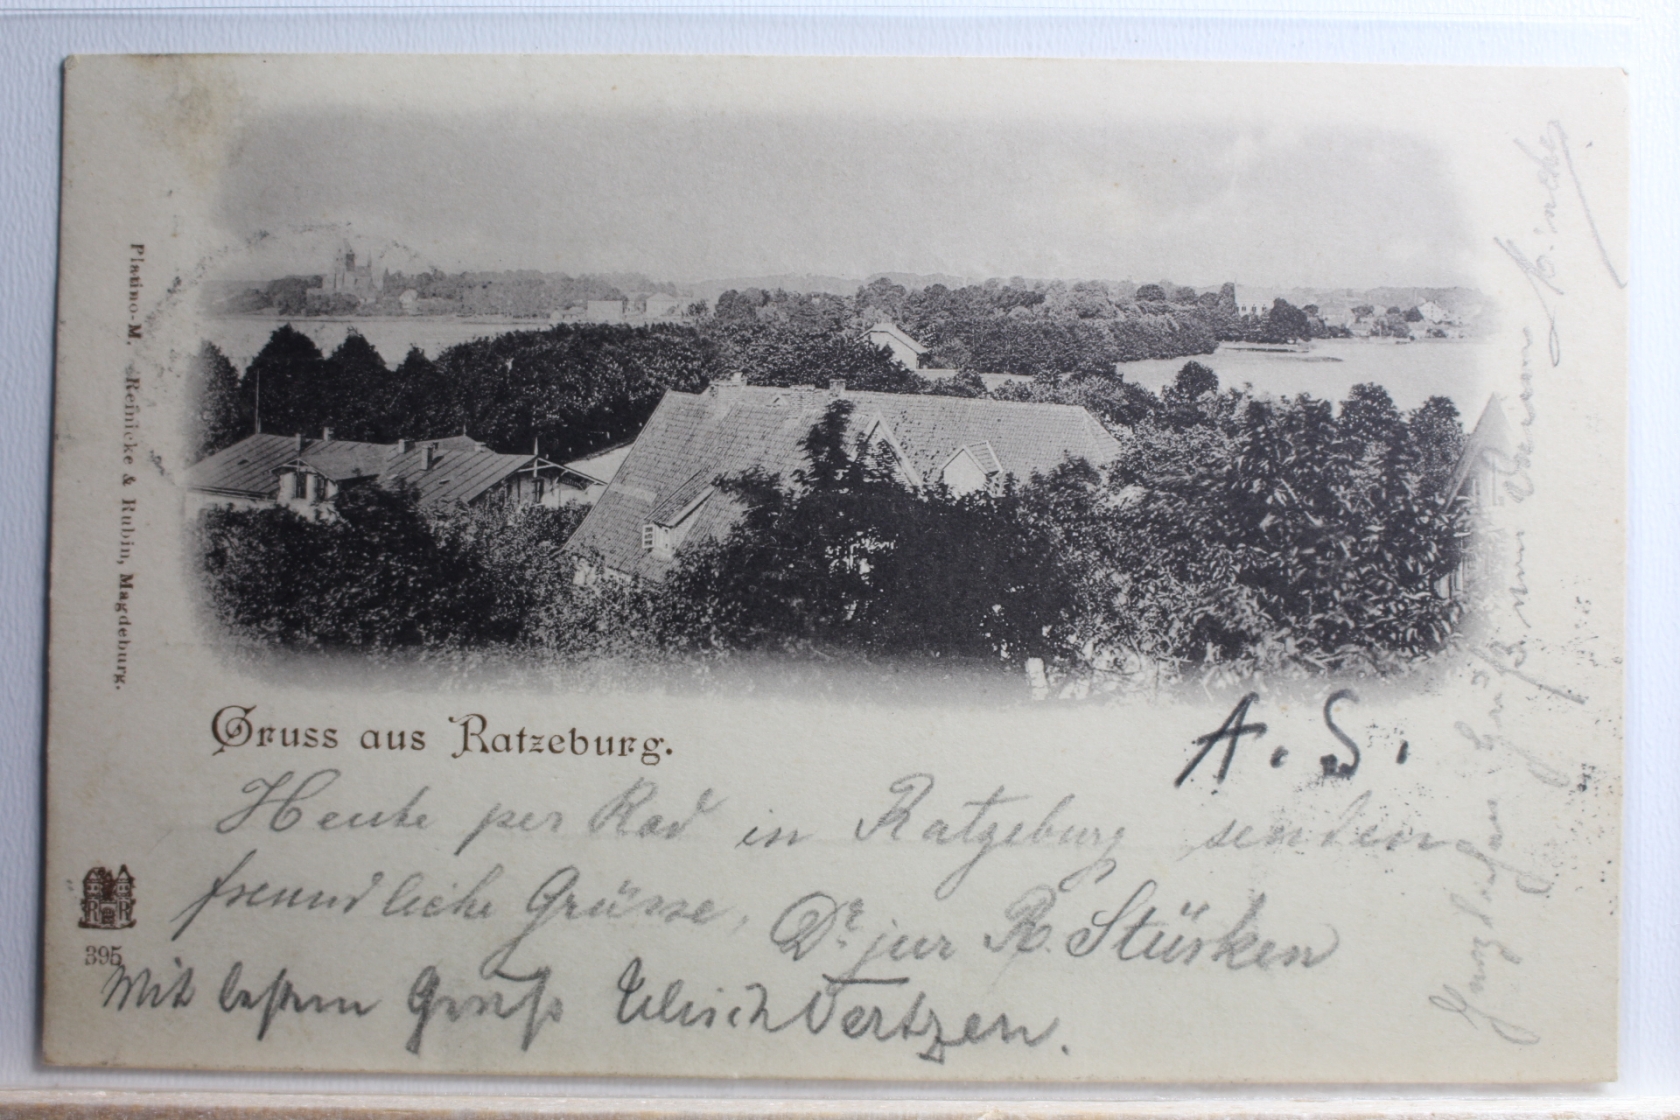 Platino-M. Reinicke & Rubin, Magdeburg.
Gruss aus Ratzeburg.
A. S.
Heute per Rad in Ratzeburg senden
freundliche Grüsse, Dr. jur R. Stürken
Mit bestem Gruß Ulrich Oertzen.
R R
395
Herzlichen Gruß